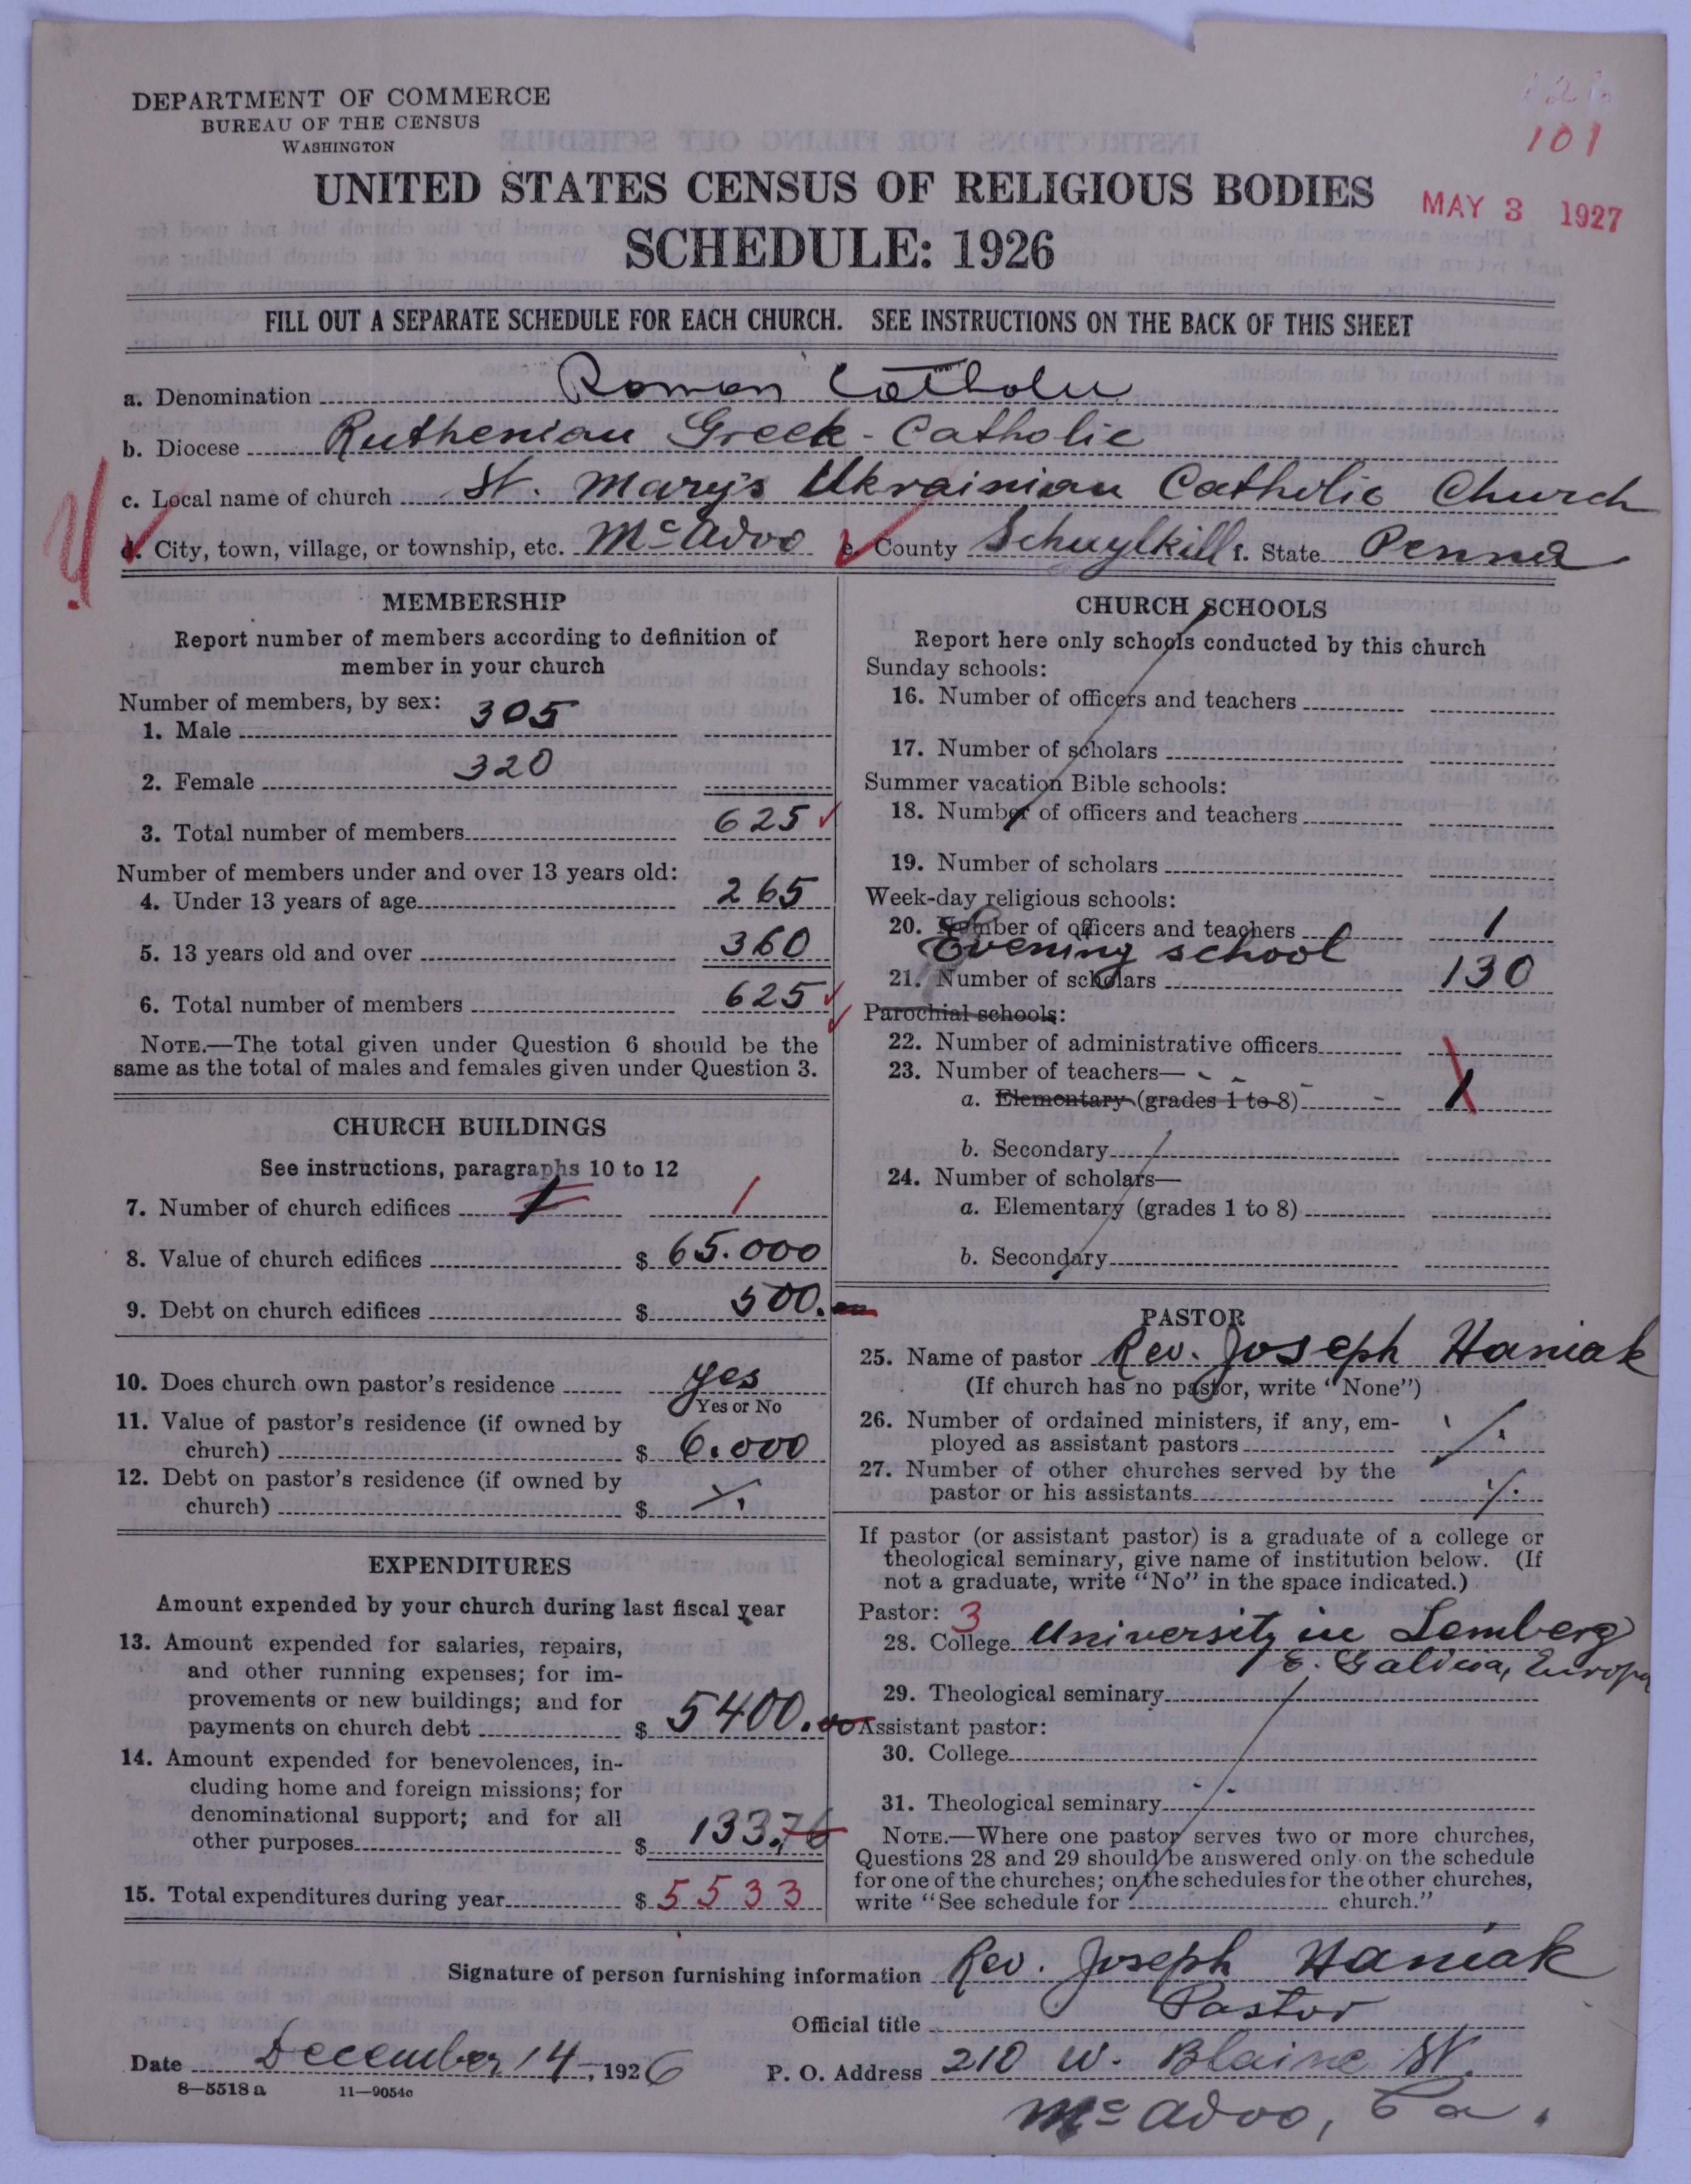 DEPARTMENT OF COMMERCE
BUREAU OF THE CENSUS
WASHINGTON
101
UNITED STATES CENSUS OF RELIGIOUS BODIES
MAY 3 1927
SCHEDULE: 1926
FILL OUT A SEPARATE SCHEDULE FOR EACH CHURCH. SEE INSTRUCTIONS ON THE BACK OF THIS SHEET
a. Denomination Roman Catholic
b. Diocese Ruthenian Greek-Catholic
c. Local name of church St. Mary's Ukrainian Catholic Church
d. City, town, village, or township, etc. McAdoo e. County Schuylkill f. State Penna
MEMBERSHIP
Report number of members according to definition of
member in your church
Number of members, by sex:
1. Male 305
2. Female 320
3. Total number of members 625
Number of members under and over 13 years old:
4. Under 13 years of age 265
5. 13 years old and over 360
6. Total number of members 625
NOTE.—The total given under Question 6 should be the
same as the total of males and females given under Question 3.
CHURCH BUILDINGS
See instructions, paragraphs 10 to 12
7. Number of church edifices 1 1
8. Value of church edifices $ 65.000
9. Debt on church edifices $ 500.
10. Does church own pastor's residence yes
Yes or No
11. Value of pastor's residence (if owned by
church) $ 6.000
12. Debt on pastor's residence (if owned by
church) $
EXPENDITURES
Amount expended by your church during last fiscal year
13. Amount expended for salaries, repairs,
and other running expenses; for im-
provements or new buildings; and for
payments on church debt $ 5400.00
14. Amount expended for benevolences, in-
cluding home and foreign missions; for
denominational support; and for all
other purposes $ 133.76
15. Total expenditures during year $ 5533
CHURCH SCHOOLS
Report here only schools conducted by this church
Sunday schools:
16. Number of officers and teachers
17. Number of scholars
Summer vacation Bible schools:
18. Number of officers and teachers
19. Number of scholars
Week-day religious schools:
20. Number of officers and teachers 1
Evening school
21. Number of scholars 130
Parochial schools:
22. Number of administrative officers
23. Number of teachers—
a. Elementary (grades 1 to 8) 1
b. Secondary
24. Number of scholars—
a. Elementary (grades 1 to 8)
b. Secondary
PASTOR
25. Name of pastor Rev. Joseph Haniak
(If church has no pastor, write "None")
26. Number of ordained ministers, if any, em-
ployed as assistant pastors
27. Number of other churches served by the
pastor or his assistants
If pastor (or assistant pastor) is a graduate of a college or
theological seminary, give name of institution below. (If
not a graduate, write "No" in the space indicated.)
Pastor: 3
28. College University in Lemberg
E. Galicia, Europa
29. Theological seminary
Assistant pastor:
30. College
31. Theological seminary
NOTE.—Where one pastor serves two or more churches,
Questions 28 and 29 should be answered only on the schedule
for one of the churches; on the schedules for the other churches,
write "See schedule for church."
Signature of person furnishing information Rev. Joseph Haniak
Official title Pastor
Date December 14, 1926 P. O. Address 210 W. Blaine St.
8—5518a 11—9054c
McAdoo, Pa.